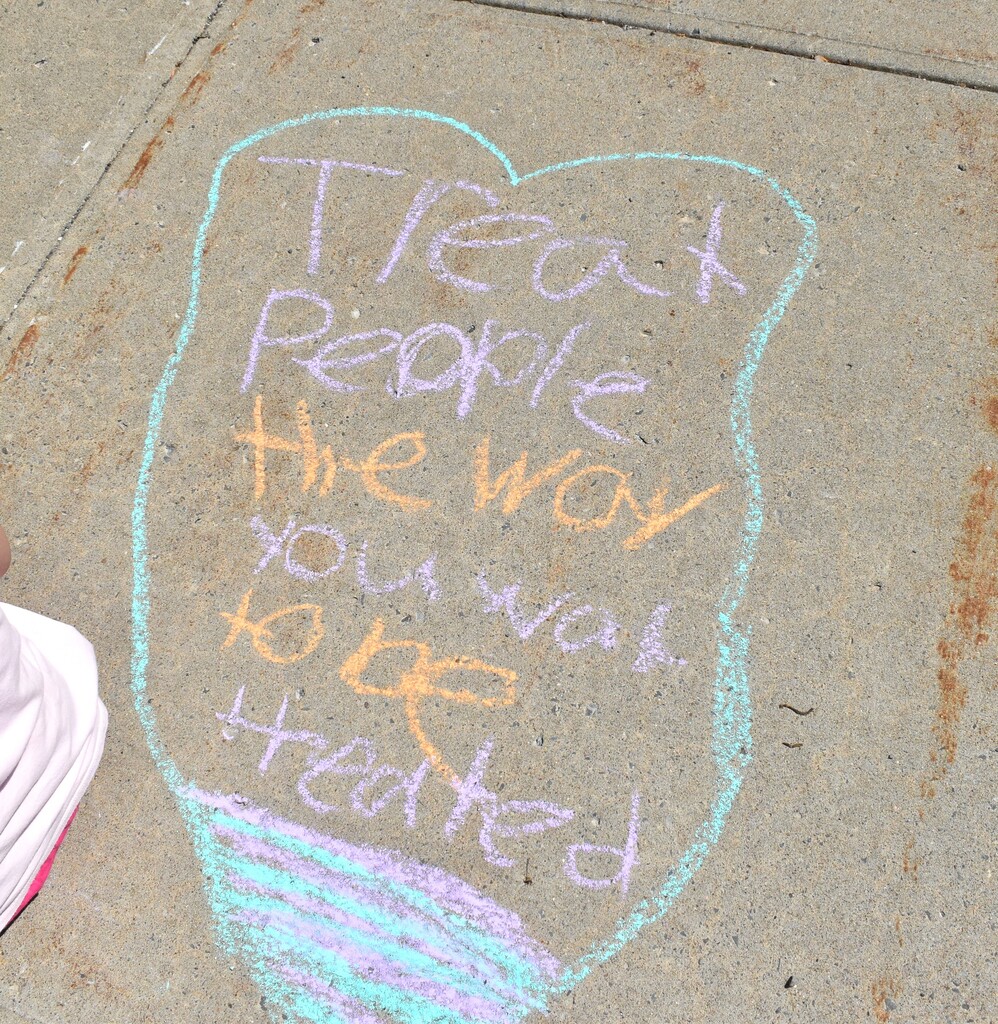 Treat
People
the way
you wat
to be
treated